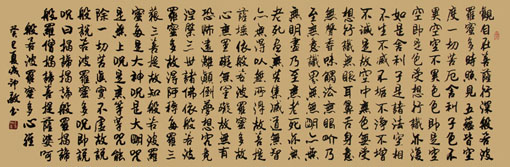 觀自在菩薩行深般若波
羅蜜多時照見五蘊皆空
度一切苦厄舍利子色不
異空空不異色色即是空
空即是色受想行識亦復
如是舍利子是諸法空相
不生不滅不垢不淨不增
不減是故空中無色無受
想行識無眼耳鼻舌身意
無色聲香味觸法無眼界
乃至無意識界無無明亦
無無明盡乃至無老死亦
無老死盡無苦集滅道無
智亦無得以無所得故菩提
薩埵依般若波羅蜜多故
心無罣礙無罣礙故無有
恐怖遠離顛倒夢想究竟
涅槃三世諸佛依般若波
羅蜜多故得阿耨多羅三
藐三菩提故知般若波羅
蜜多是大神呪是大明呪
是無上呪是無等等呪能
除一切苦真實不虛故說
般若波羅蜜多呪即說
呪曰揭諦揭諦波羅揭諦
波羅僧揭諦菩提薩婆訶
般若波羅蜜多心經
癸巳夏